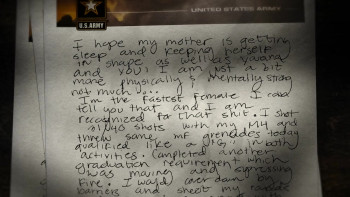 U.S. ARMY
UNITED STATES ARMY
I hope my mother is getting
sleep and keeping herself
in shape as well as
and you! I am just a bit
more physically & mentally strong
not much...
I'm the fastest female I can
tell you that and I am
recognized for that shit. I shot
40 shots with my M4 and
threw some mf grenades today
qualified like a in both
activities. Completed another
graduation requirement which
was moving and
fire. I was on
barriers and shoot my